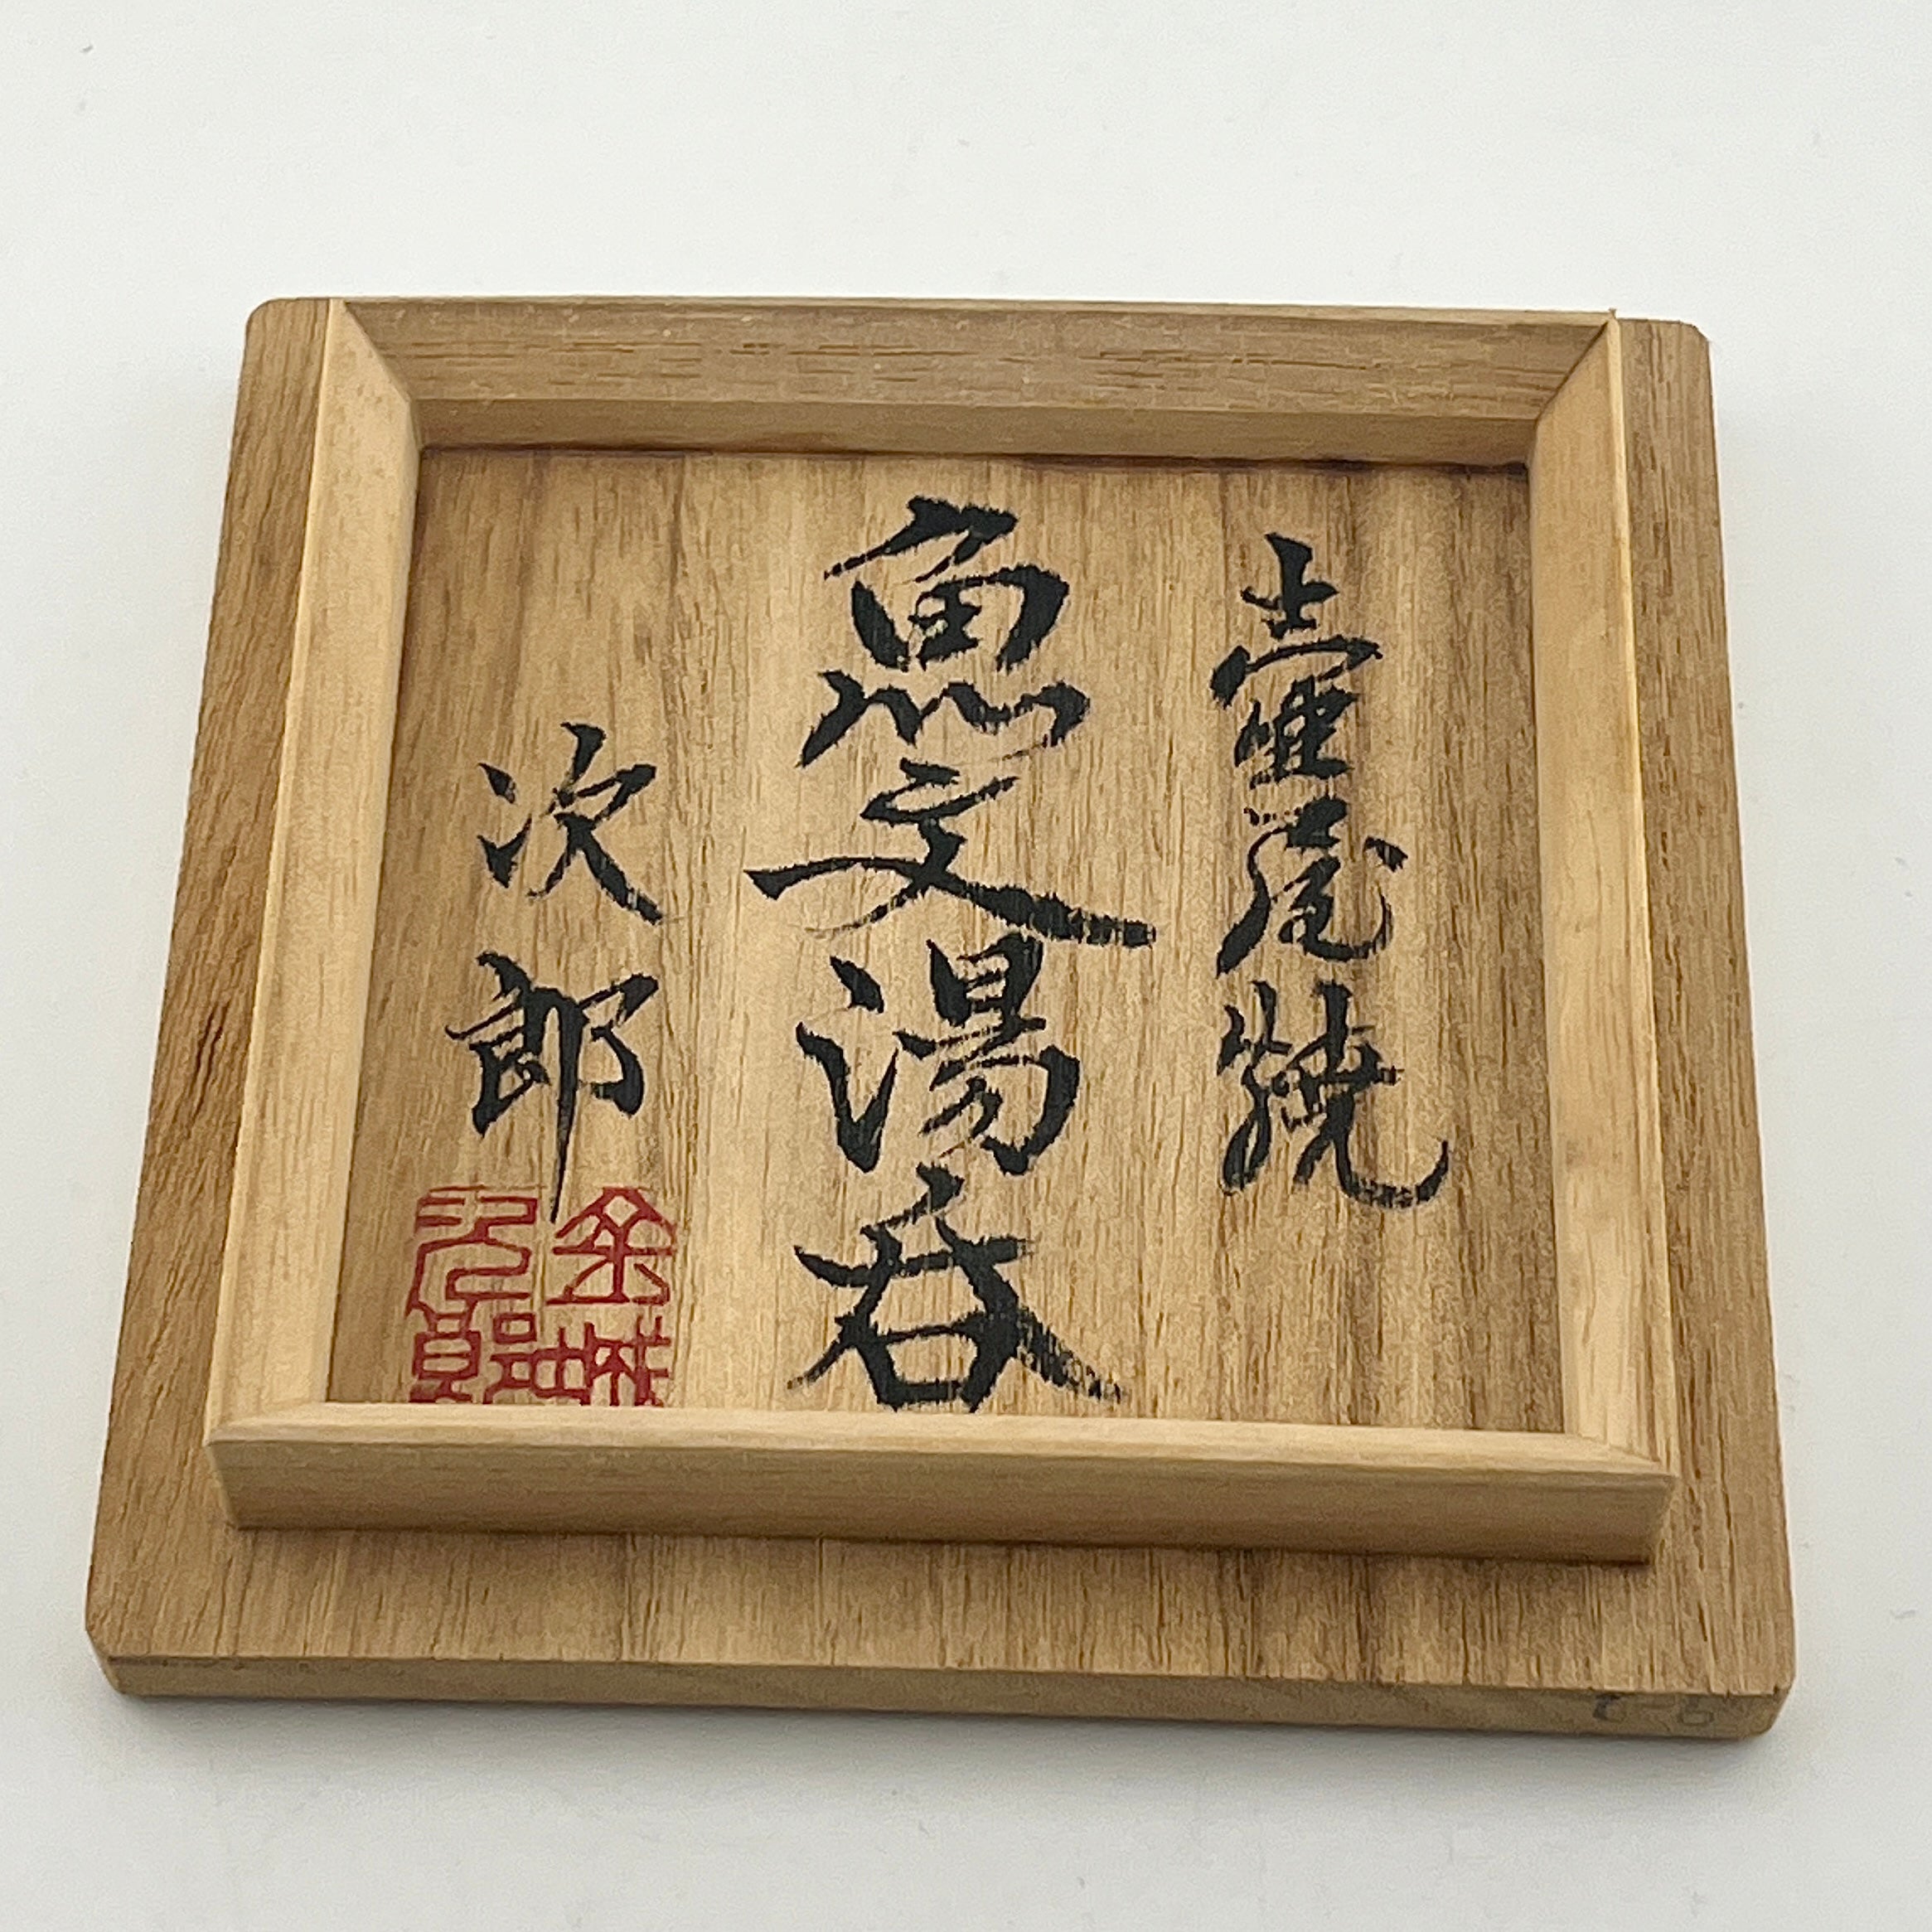 壷屋焼
魚文湯呑
次郎
金城
次郎